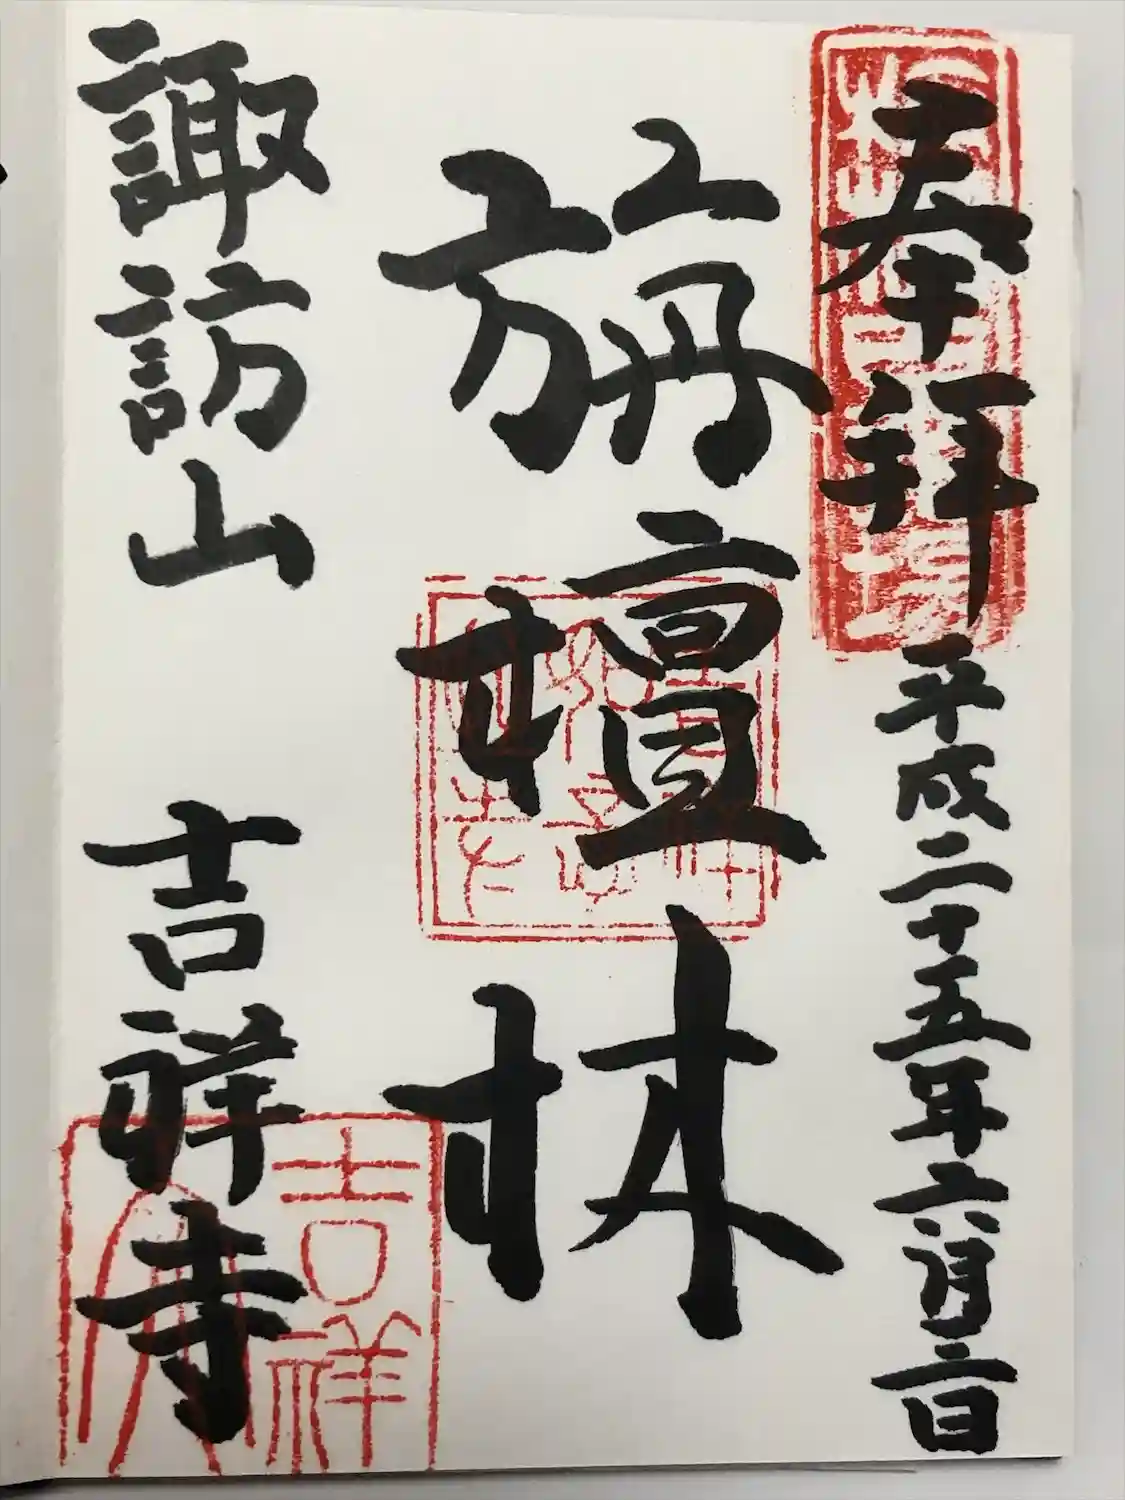 奉拝 平成二十五年六月二日
旃檀林
諏訪山 吉祥寺
吉祥